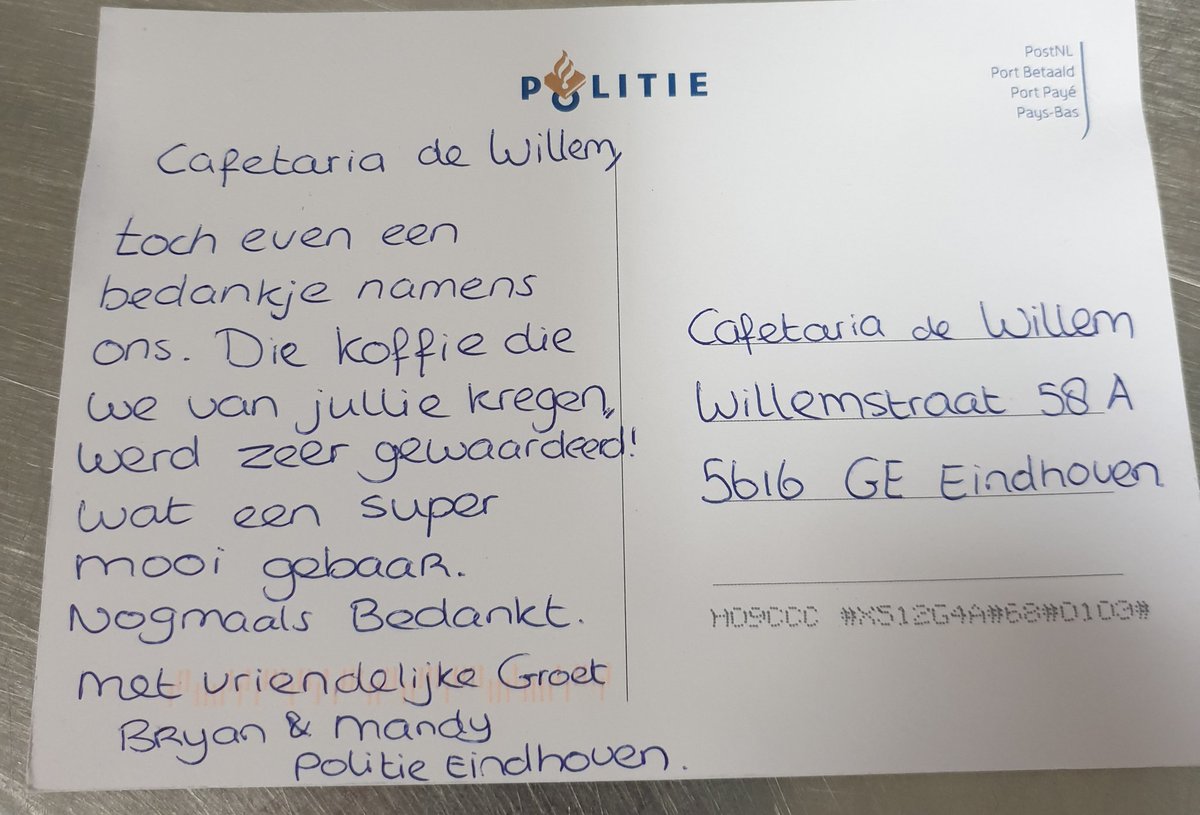 POLITIE
PostNL
Port Betaald
Port Payé
Pays-Bas
Cafetaria de Willem,
toch even een
bedankje namens
ons. Die koffie die
we van jullie kregen,
werd zeer gewaardeerd!
wat een super
mooi gebaar.
Nogmaals Bedankt.
met vriendelijke Groet
Bryan & Mandy
Politie Eindhoven.
Cafetaria de Willem
Willemstraat 58 A
5616 GE Eindhoven
H09CCC #X512G4A#68#0103#